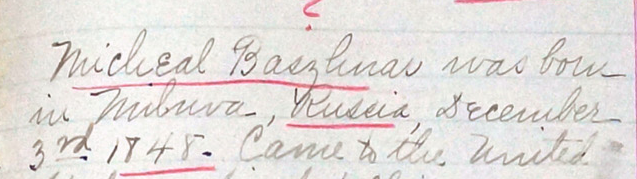 Micheal Baszhnar was born
in Mibuva, Russia, December
3rd 1848. Came to the United